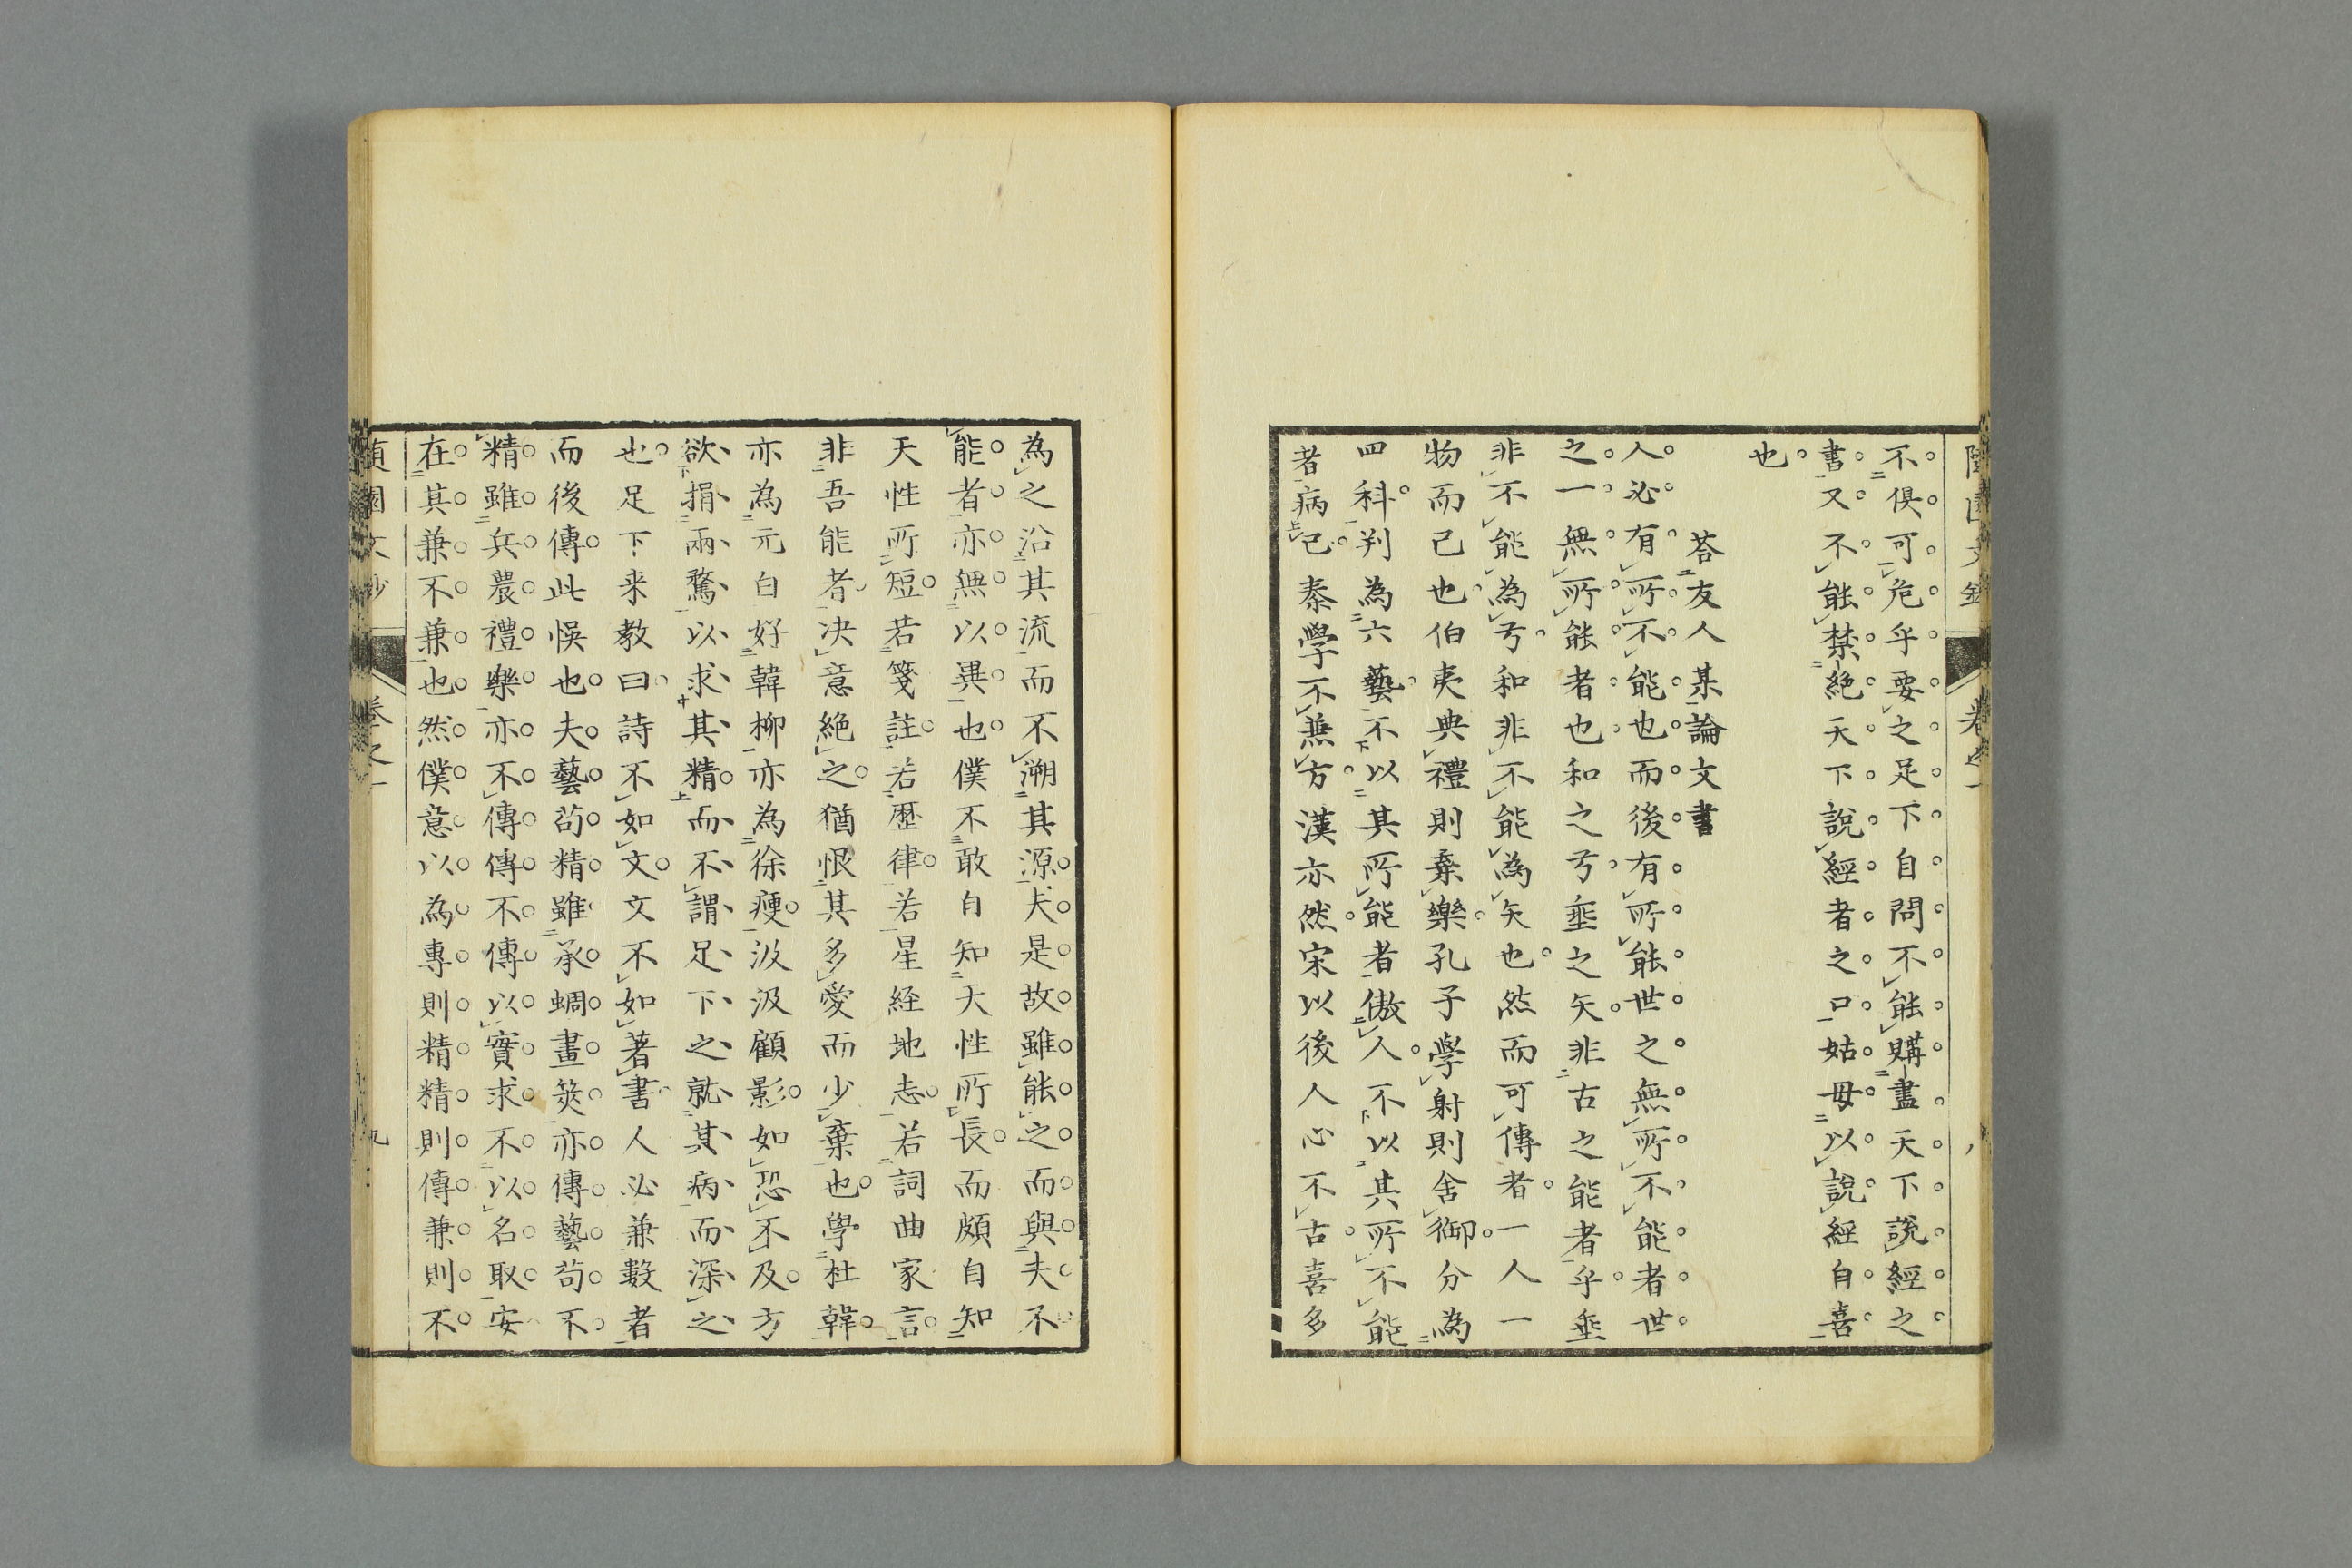 不倶可危乎要之足下自問不能購盡天下說經之
書又不能禁絕天下說經者之口姑毋以說經自喜
也
荅友人某論文書
人必有所不能也而後有所能世之無所不能者世
之一無所能者也和之弓垂之矢非古之能者乎垂
非不能為弓和非不能為矢也然而可傳者一人一
物而已也伯夷典禮則棄樂孔子學射則舍御分為
四科判為六藝不以其所能者傲人不以其所不能
者病己秦學不兼方漢亦然宋以後人心不古喜多
為之沿其流而不溯其源夫是故雖能之而與夫不
能者亦無以異也僕不敢自知天性所長而頗自知
天性所短若箋註若歷律若星經地志若詞曲家言
非吾能者决意絕之猶恨其多愛而少棄也學杜韓
亦為元白好韓柳亦為徐庾汲汲顧影如恐不及方
欲捐兩騖以求其精而不謂足下之就其病而深之
也足下来教曰詩不如文文不如著書人必兼數者
而後傳此悞也夫藝茍精雖承蜩畫筴亦傳藝茍不
精雖兵農禮樂亦不傳傳不傳以實求不以名取安
在其兼不兼也然僕意以為專則精精則傳兼則不
卷之一
九